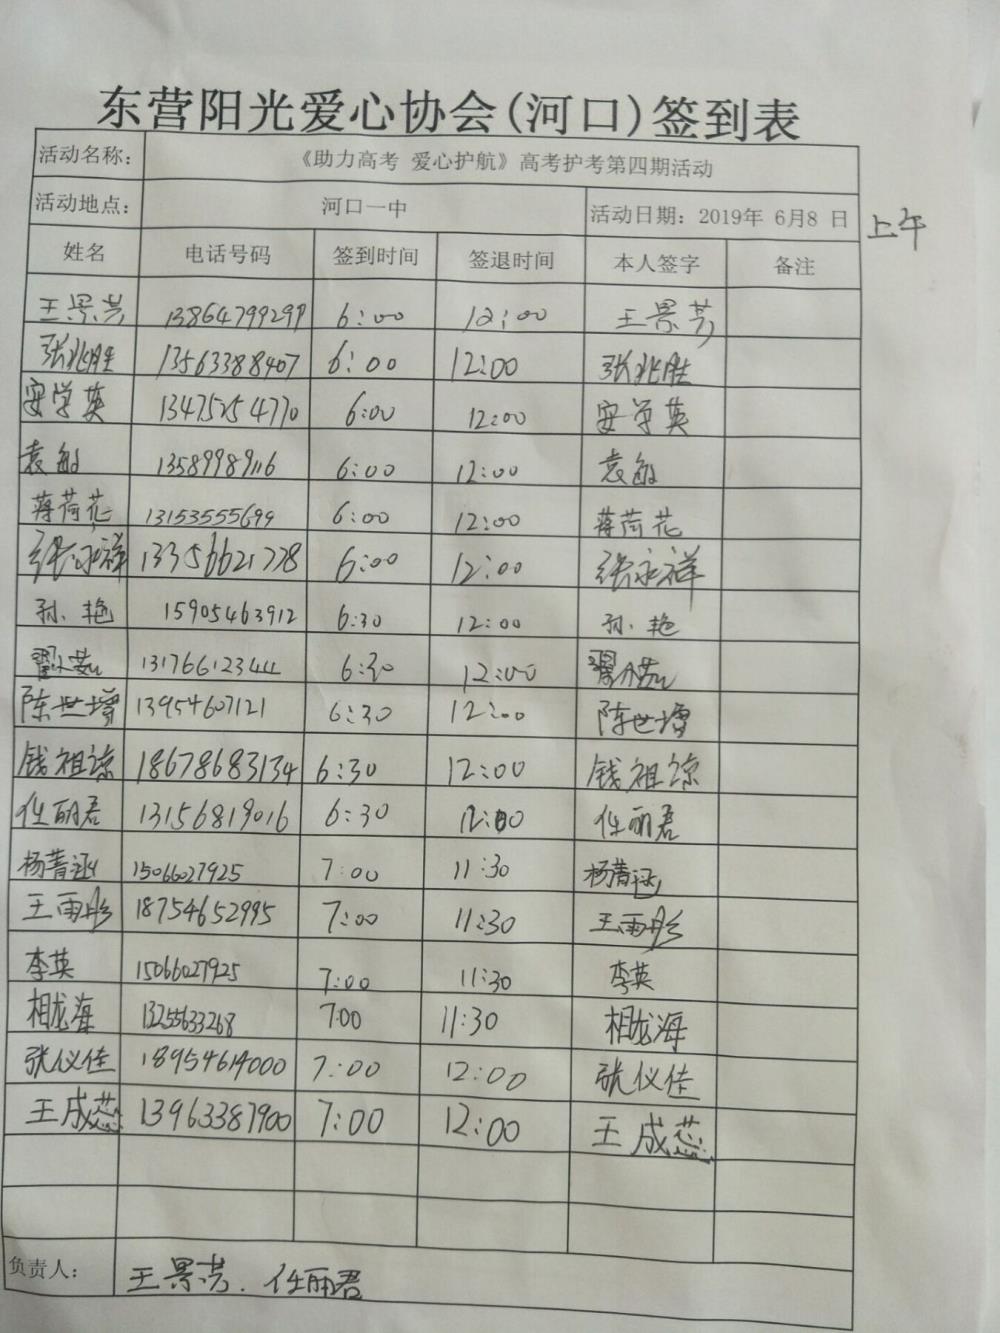 东营阳光爱心协会(河口)签到表
活动名称: 《助力高考 爱心护航》高考护考第四期活动
活动地点: 河口一中 活动日期: 2019年 6月8 日 上午
姓名 电话号码 签到时间 签退时间 本人签字 备注
王景芸 13864799299 6:00 12:00 王景芸
张兆胜 13563388407 6:00 12:00 张兆胜
安学英 13475254770 6:00 12:00 安学英
袁敏 13589989116 6:00 12:00 袁敏
蒋荷花 13153555699 6:00 12:00 蒋荷花
张永祥 13356621778 6:00 12:00 张永祥
孙艳 15905463912 6:30 12:00 孙艳
13176612344 6:30 12:00
陈世增 13954607121 6:30 12:00 陈世增
钱祖谅 18678683134 6:30 12:00 钱祖谅
任丽君 13156819016 6:30 12:00 任丽君
杨菁涵 15066027925 7:00 11:30 杨菁涵
王雨彤 18754652995 7:00 11:30 王雨彤
李英 15066027925 7:00 11:30 李英
相龙海 13255633268 7:00 11:30 相龙海
张仪佳 18954614000 7:00 12:00 张仪佳
王成蕊 13963387900 7:00 12:00 王成蕊
负责人: 王景芸. 任丽君